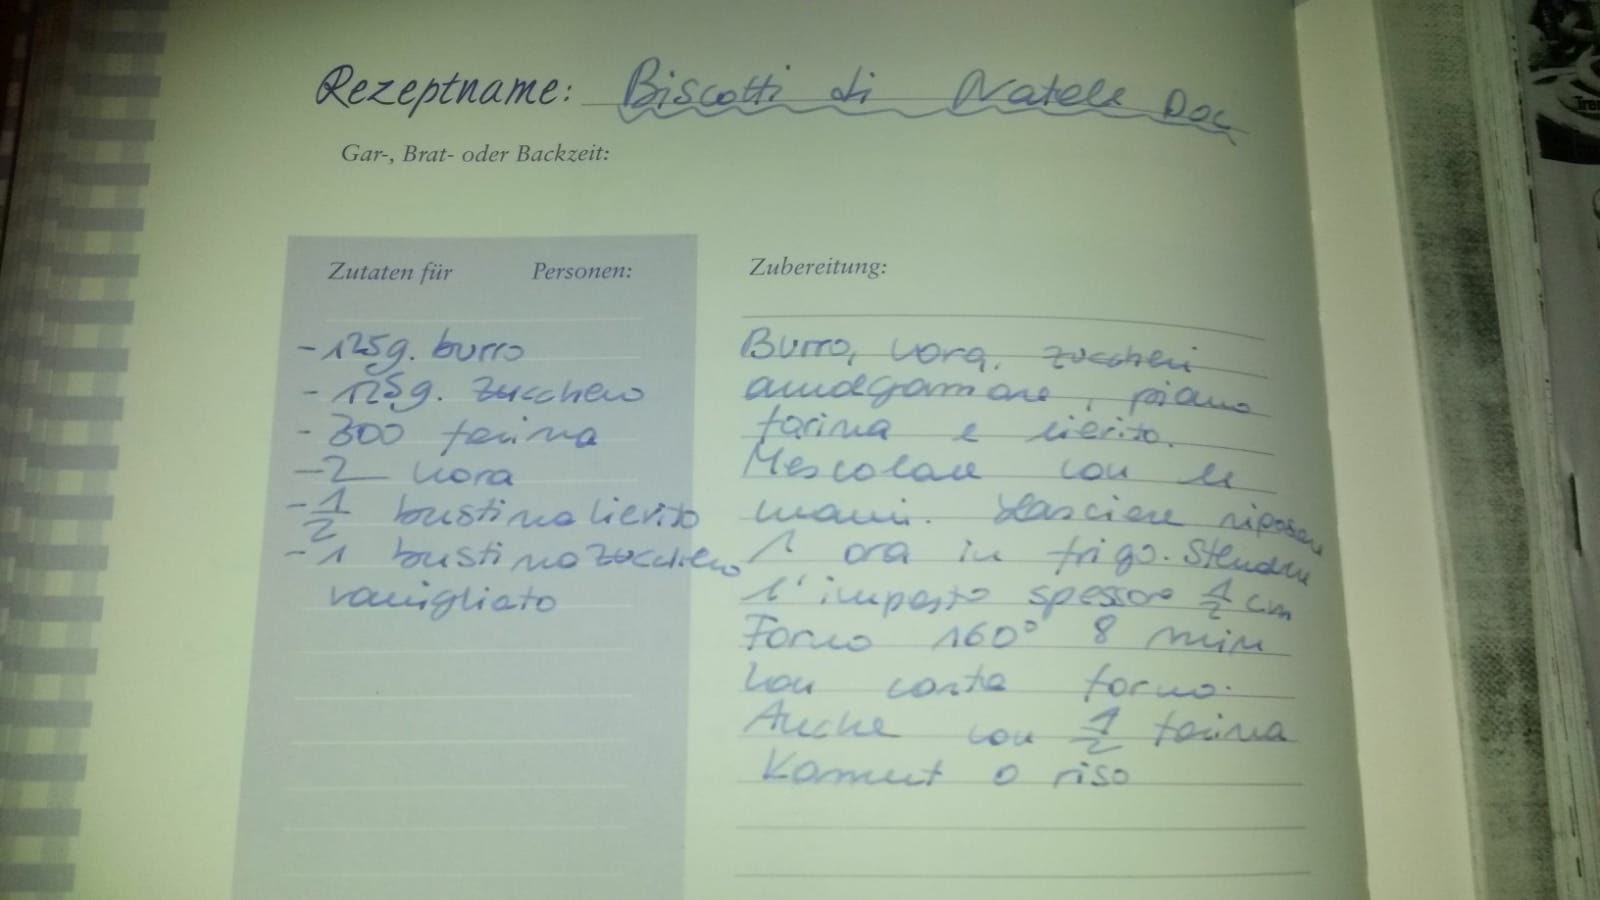 Rezeptname: Biscotti di Natale Doc
Gar-, Brat- oder Backzeit:
Zutaten für Personen:
- 125g. burro
- 125g. zucchero
- 300 farina
- 2 uova
- 1/2 bustina lievito
- 1 bustina zucchero
vanigliato
Zubereitung:
Burro, uova, zuccheri
amalgamare, piano
farina e lievito.
Mescolare con le
mani. Lasciare riposare
1 ora in frigo. Stendere
l'impasto spessore 1/2 cm
Forno 160° 8 min
con carta forno.
Anche con 1/2 farina
Kamut o riso